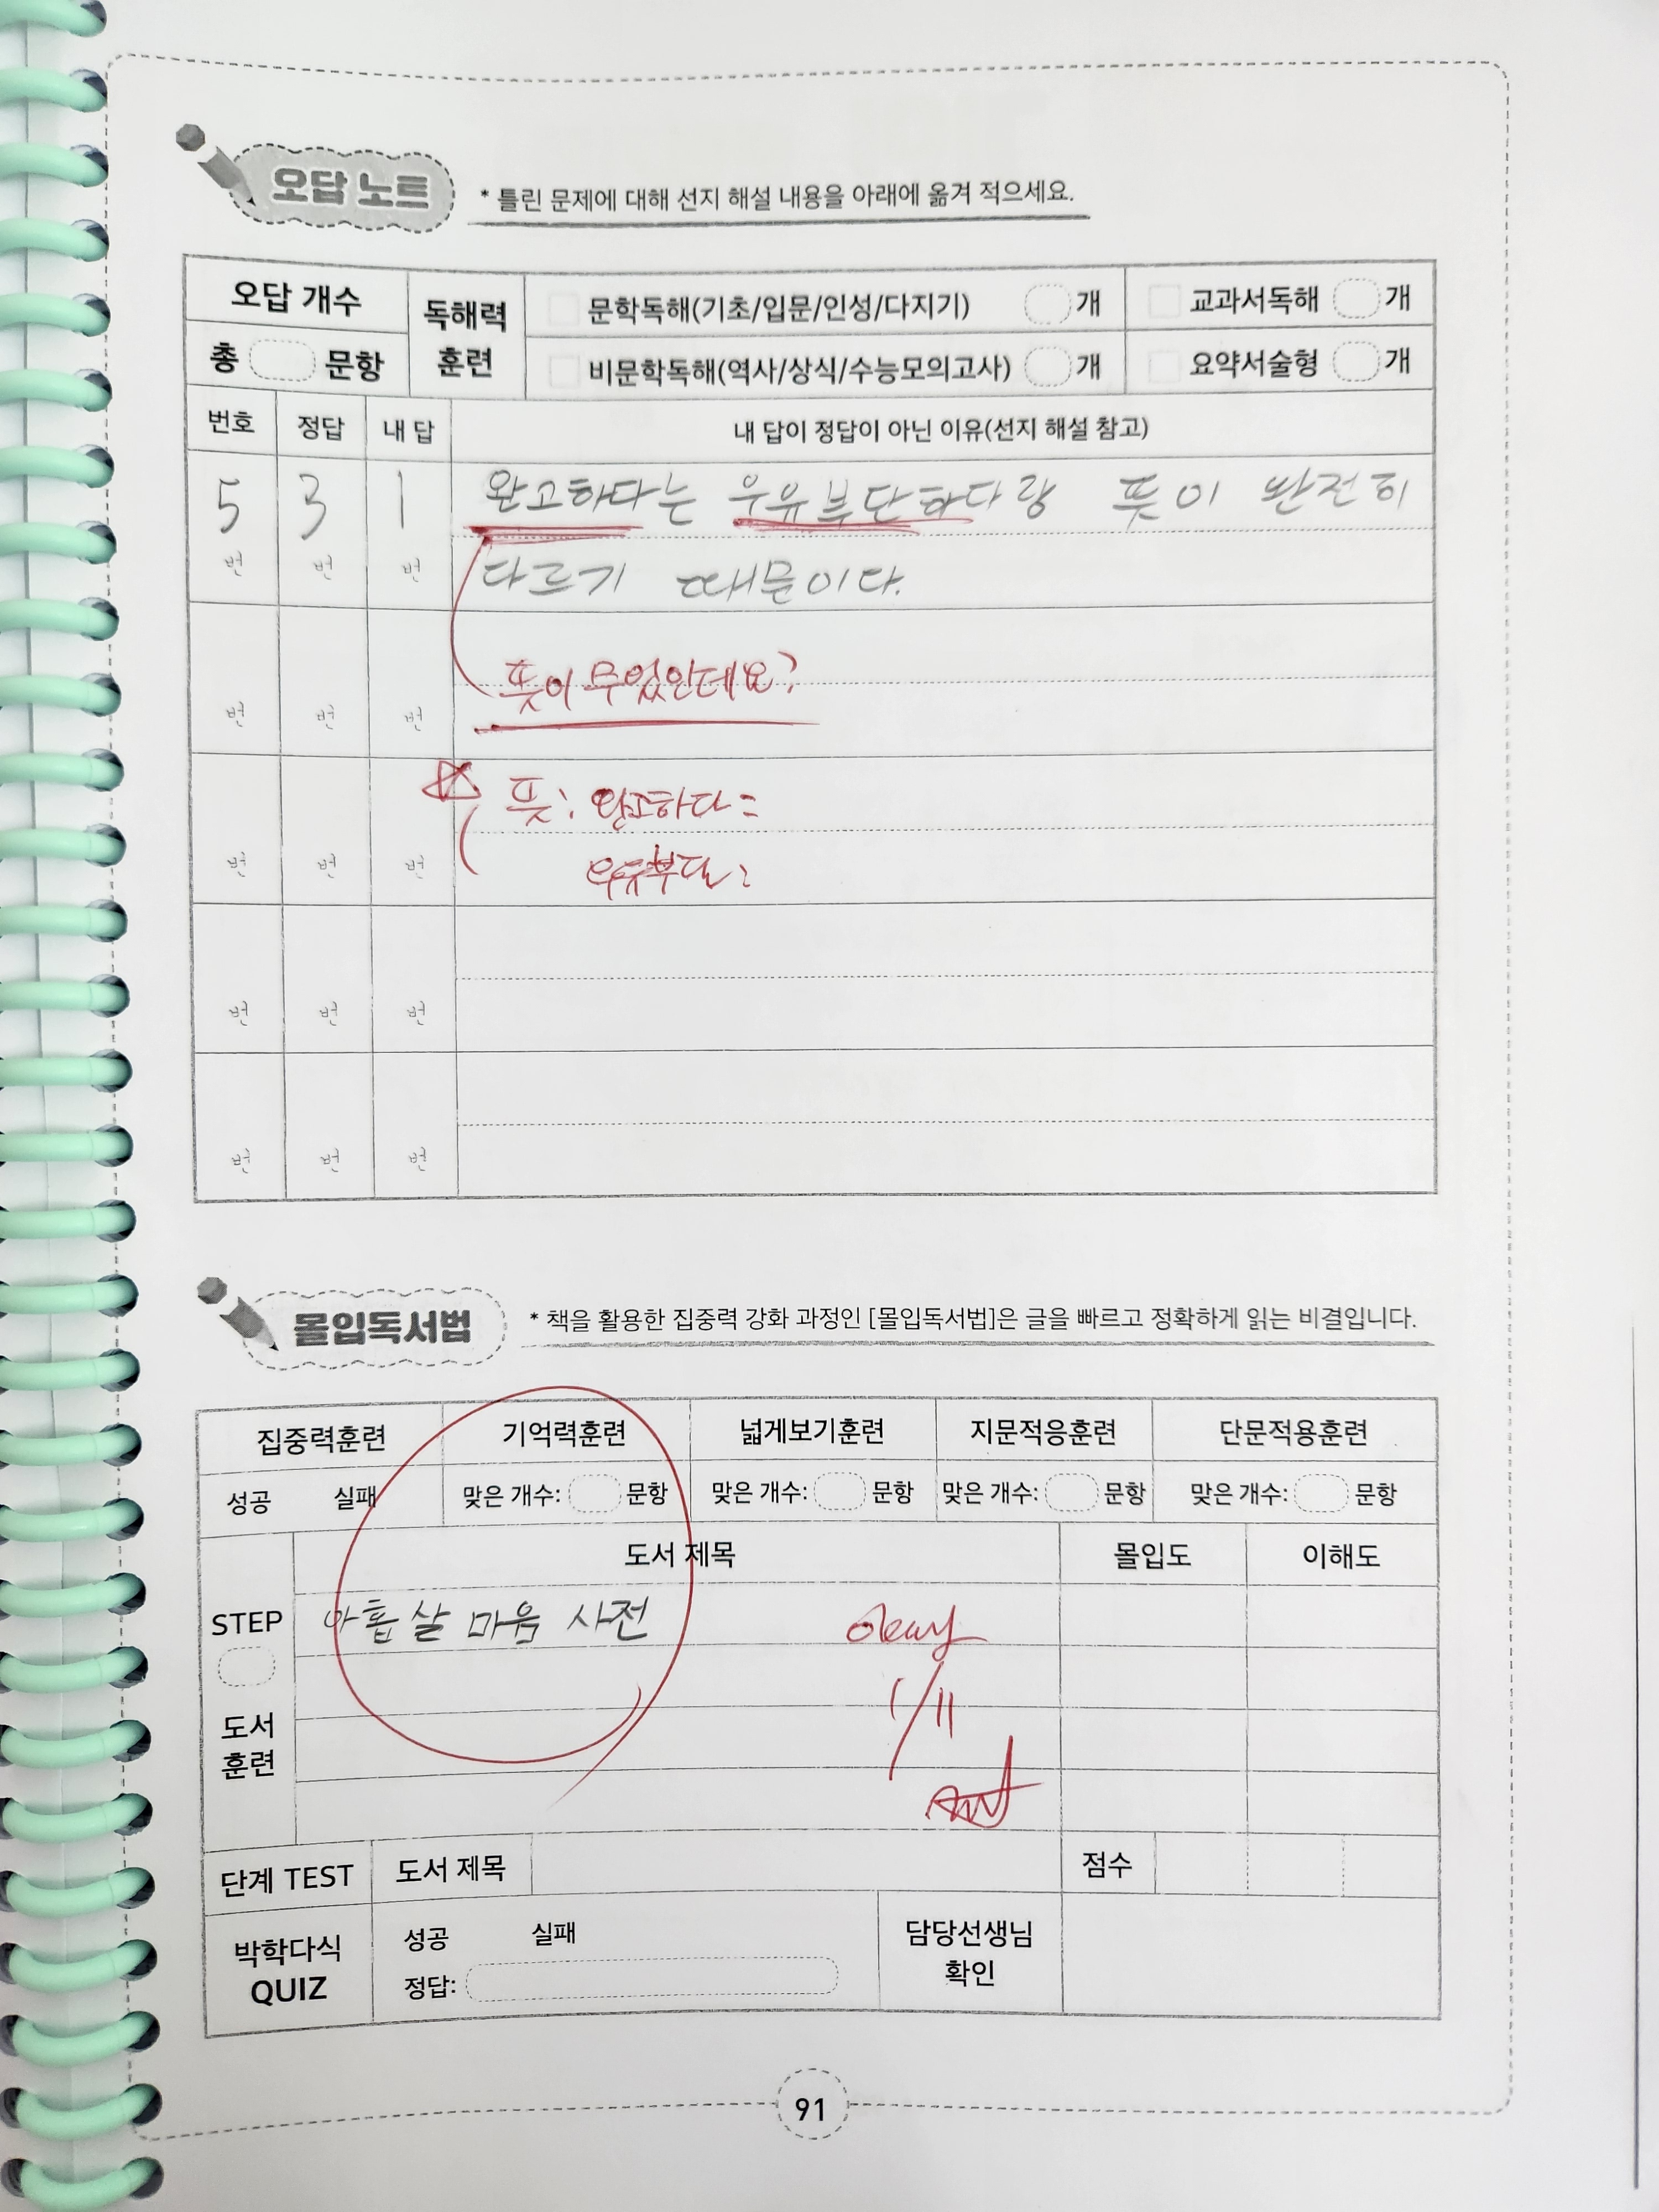 오답 노트
* 틀린 문제에 대해 선지 해설 내용을 아래에 옮겨 적으세요.
오답 개수
총 문항
독해력 훈련
문학독해(기초/입문/인성/다지기) 개
교과서독해 개
비문학독해(역사/상식/수능모의고사) 개
요약서술형 개
번호 정답 내 답 내 답이 정답이 아닌 이유(선지 해설 참고)
5 3 1 완고하다는 우유부단하다랑 뜻이 완전히
번 번 번 다르기 때문이다.
뜻이 무엇인데요?
번 번 번
뜻: 완고하다=
번 번 번 우유부단:
번 번 번
번 번 번
몰입독서법
* 책을 활용한 집중력 강화 과정인 [몰입독서법]은 글을 빠르고 정확하게 읽는 비결입니다.
집중력훈련 기억력훈련 넓게보기훈련 지문적응훈련 단문적용훈련
성공 실패 맞은 개수: 문항 맞은 개수: 문항 맞은 개수: 문항 맞은 개수: 문항
도서 제목 몰입도 이해도
STEP
아홉살 마음 사전
okay
1/11
도서
훈련
단계 TEST 도서 제목 점수
박학다식
QUIZ
성공 실패
정답:
담당선생님
확인
91